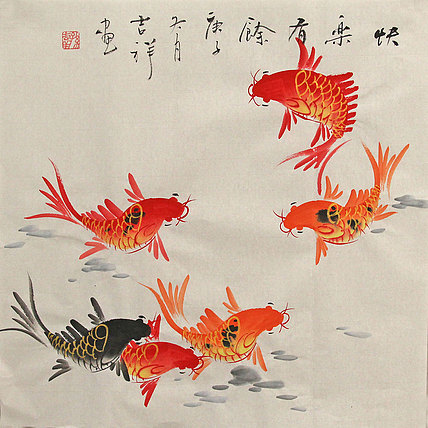 快樂有餘
庚子
五月
吉祥
画